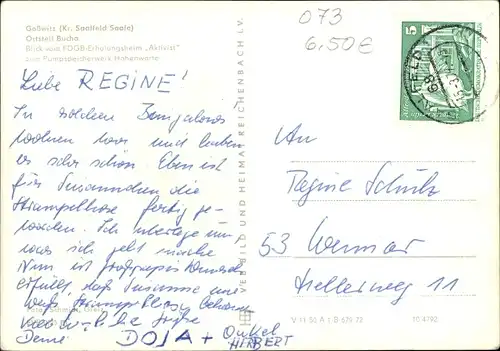 073
6,50€
Goßwitz (Kr. Saalfeld Saale)
Ortsteil Bucha
Blick vom FDGB-Erholungsheim „Aktivist"
zum Pumpspeicherwerk Hohenwarte
Liebe REGINE!
In solchen Bungalows
wohnen wir und haben
es sehr schön. Eben ist
für Susannchen die
Strampelhose fertig ge-
worden. Ich überlege nun
was ich jetzt mache
Nun ist Wunsch
erfüllt, daß Susanne eine
Strampelhose bekommt
viele liebe Grüße
Deine DOJA + Onkel
HERBERT
VERLAG BILD UND HEIMAT REICHENBACH I. V.
5
An
Regine Schulz
53 Weimar
11
V 11 50 A 1 B 679/72
10/4792